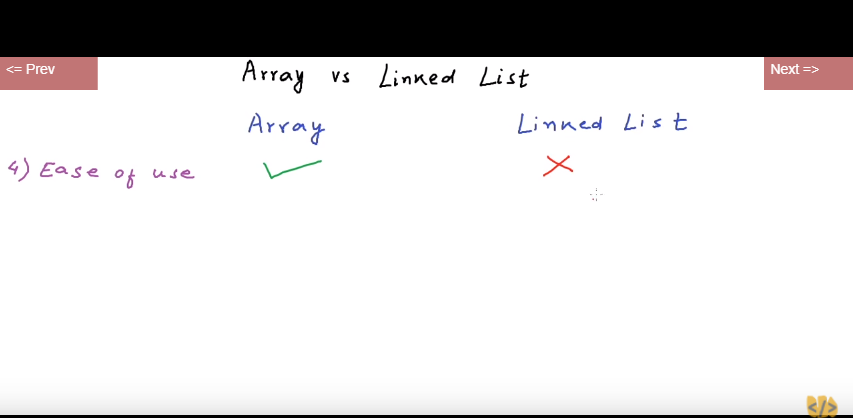 <= Prev
Array vs Linked List
Next =>
Array Linked List
4) Ease of use